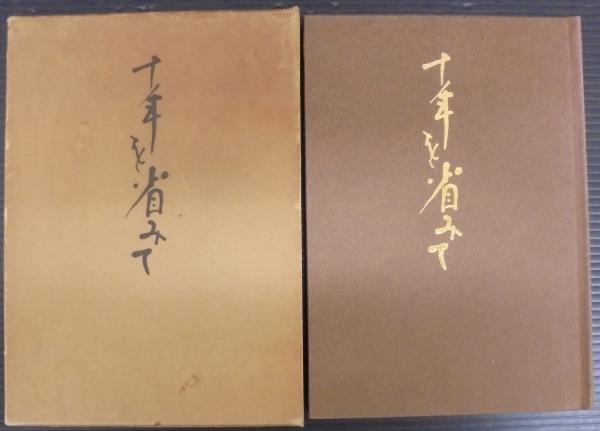 十年を省みて
十年を省みて